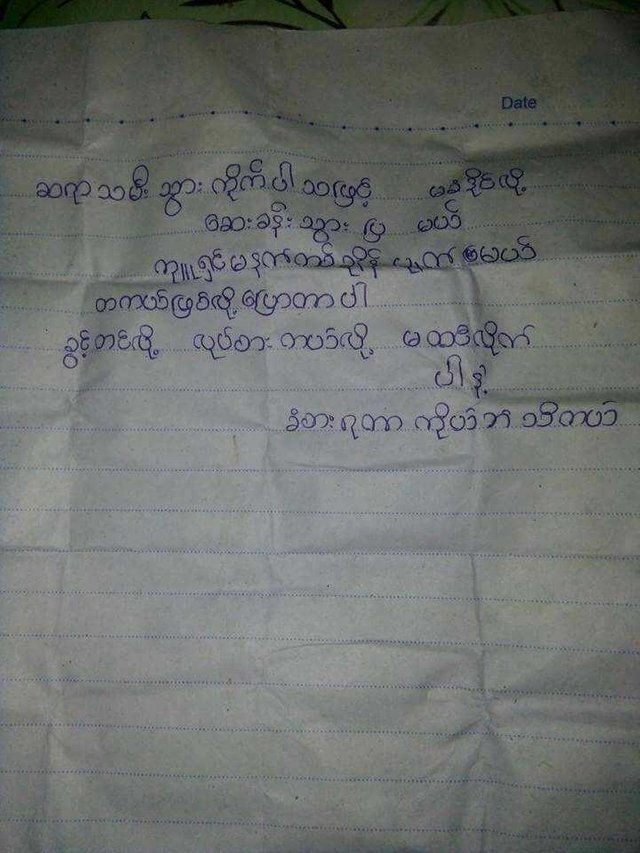 Date
ဆရာ သမီး သွား ကိုက် ပါ သဖြင့် မခံနိုင်လို့
ဆေးခန်း သွား ပြ မယ်
ကျူရှင် မနက်တစ်ချိန် ပျက်မယ်
တကယ်ဖြစ်လို့ ပြောတာ ပါ
ခွင့်တင်လို့ လုပ်စား တယ်လို့ မထင်လိုက်
ပါ နဲ့
ခံစား ရတာ ကိုယ် ဘဲ သိတယ်